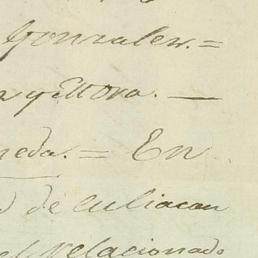 Gonzales. =
y Mora. —
neda. = En
d de Culiacan
el Relacionado